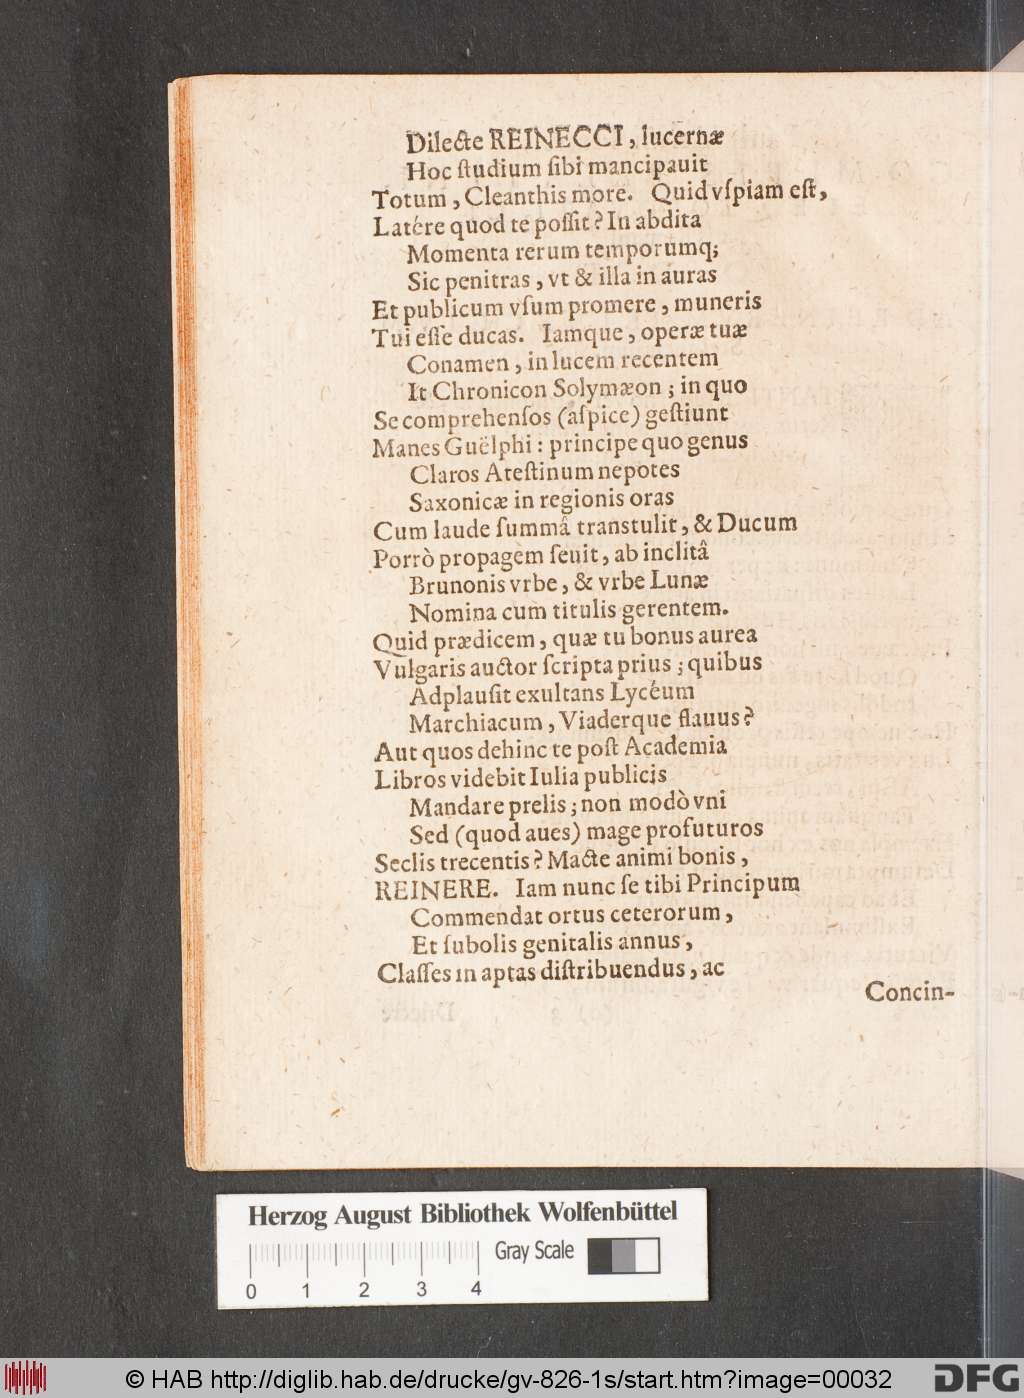 Dilecte REINECCI, lucernæ
Hoc ſtudium ſibi mancipauit
Totum, Cleanthis more. Quid vſpiam eſt,
Latére quod te poſſit? In abdita
Momenta rerum temporumq;
Sic penitras, vt & illa in auras
Et publicum vſum promere, muneris
Tui eſſe ducas. Iamque, operæ tuæ
Conamen, in lucem recentem
It Chronicon Solymæon; in quo
Se comprehenſos (aſpice) geſtiunt
Manes Guëlphi: principe quo genus
Claros Ateſtinum nepotes
Saxonicæ in regionis oras
Cum laude ſummâ transtulit, & Ducum
Porrò propagem ſeuit, ab inclitâ
Brunonis vrbe, & vrbe Lunæ
Nomina cum titulis gerentem.
Quid prædicem, quæ tu bonus aurea
Vulgaris auctor ſcripta prius; quibus
Adplauſit exultans Lycéum
Marchiacum, Viaderque flauus?
Aut quos dehinc te poſt Academia
Libros videbit Iulia publicis
Mandare prelis; non modò vni
Sed (quod aues) mage profuturos
Seclis trecentis? Macte animi bonis,
REINERE. Iam nunc ſe tibi Principum
Commendat ortus ceterorum,
Et ſubolis genitalis annus,
Claſſes in aptas diſtribuendus, ac
Concin-
Herzog August Bibliothek Wolfenbüttel
Gray Scale
0 1 2 3 4
© HAB http://diglib.hab.de/drucke/gv-826-1s/start.htm?image=00032
DFG